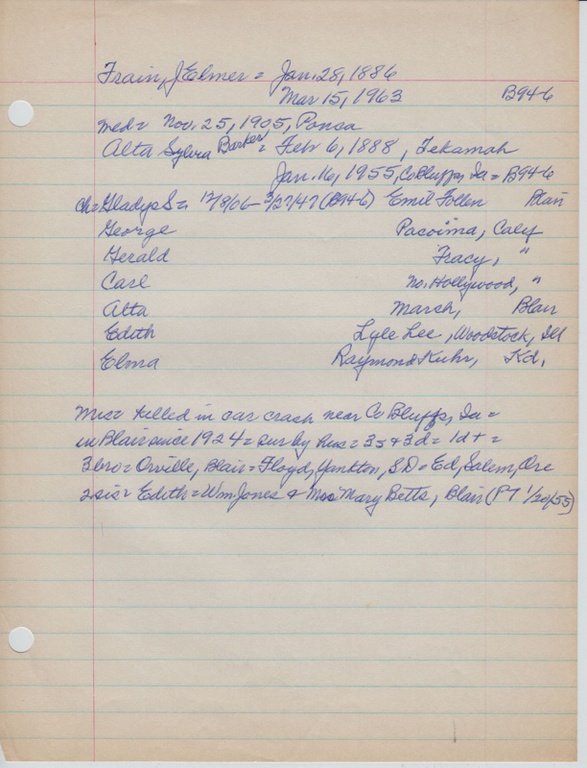 Train, J Elmer = Jan. 28, 1886
Mar 15, 1963 B946
med = Nov. 25, 1905, Ponca
Alta Sylvia Barker = Feb 6, 1888, Tekamah
Jan. 16, 1955, Co Bluffs, Ia = B946
ch = Gladys S = 12/8/06 - 3/27/47 (B946) Emil Follen Blair
George Pacoima, Calif
Gerald Tracy, "
Carl No. Hollywood, "
Alta Marsh, Blair
Edith Lyle Lee, Woodstock, Ill
Elma Raymond Kuhr, Kd.
Misc = killed in car crash near Co Bluffs, Ia =
in Blair since 1924 = sur by hus = 3s + 3d = 1d+ =
3 bro = Orville, Blair = Floyd, Yankton, SD = Ed, Salem, Ore
2 sis = Edith = Wm Jones & Mrs Mary Betts, Blair (PT 1/20/55)